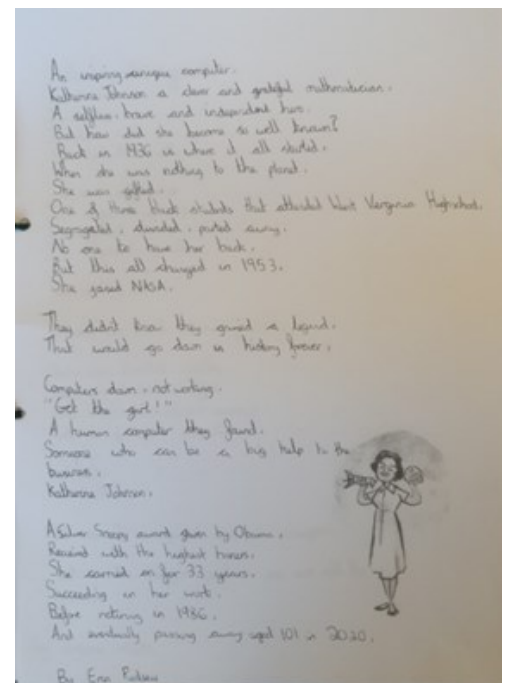 An inspiring unique computer.
Katherine Johnson a clever and grateful mathematician.
A selfless, brave and independent hero.
But how did she become so well known?
Back in 1936 is where it all started.
When she was nothing to the planet.
She was gifted.
One of three black students that attended West Verginia Highschool.
Segregated, divided, parted away.
No one to have her back.
But this all changed in 1953.
She joined NASA.
They didn't know they gained a legend.
That would go down in history forever.
Computers down, not working.
"Get the girl!"
A human computer they found.
Someone who can be a big help to the
business.
Katherine Johnson.
A Silver Snoopy award given by Obama.
Received with the highest honors.
She carried on for 33 years.
Succeeding in her work.
Before retiring in 1986.
And eventually passing away aged 101 in 2020.
By